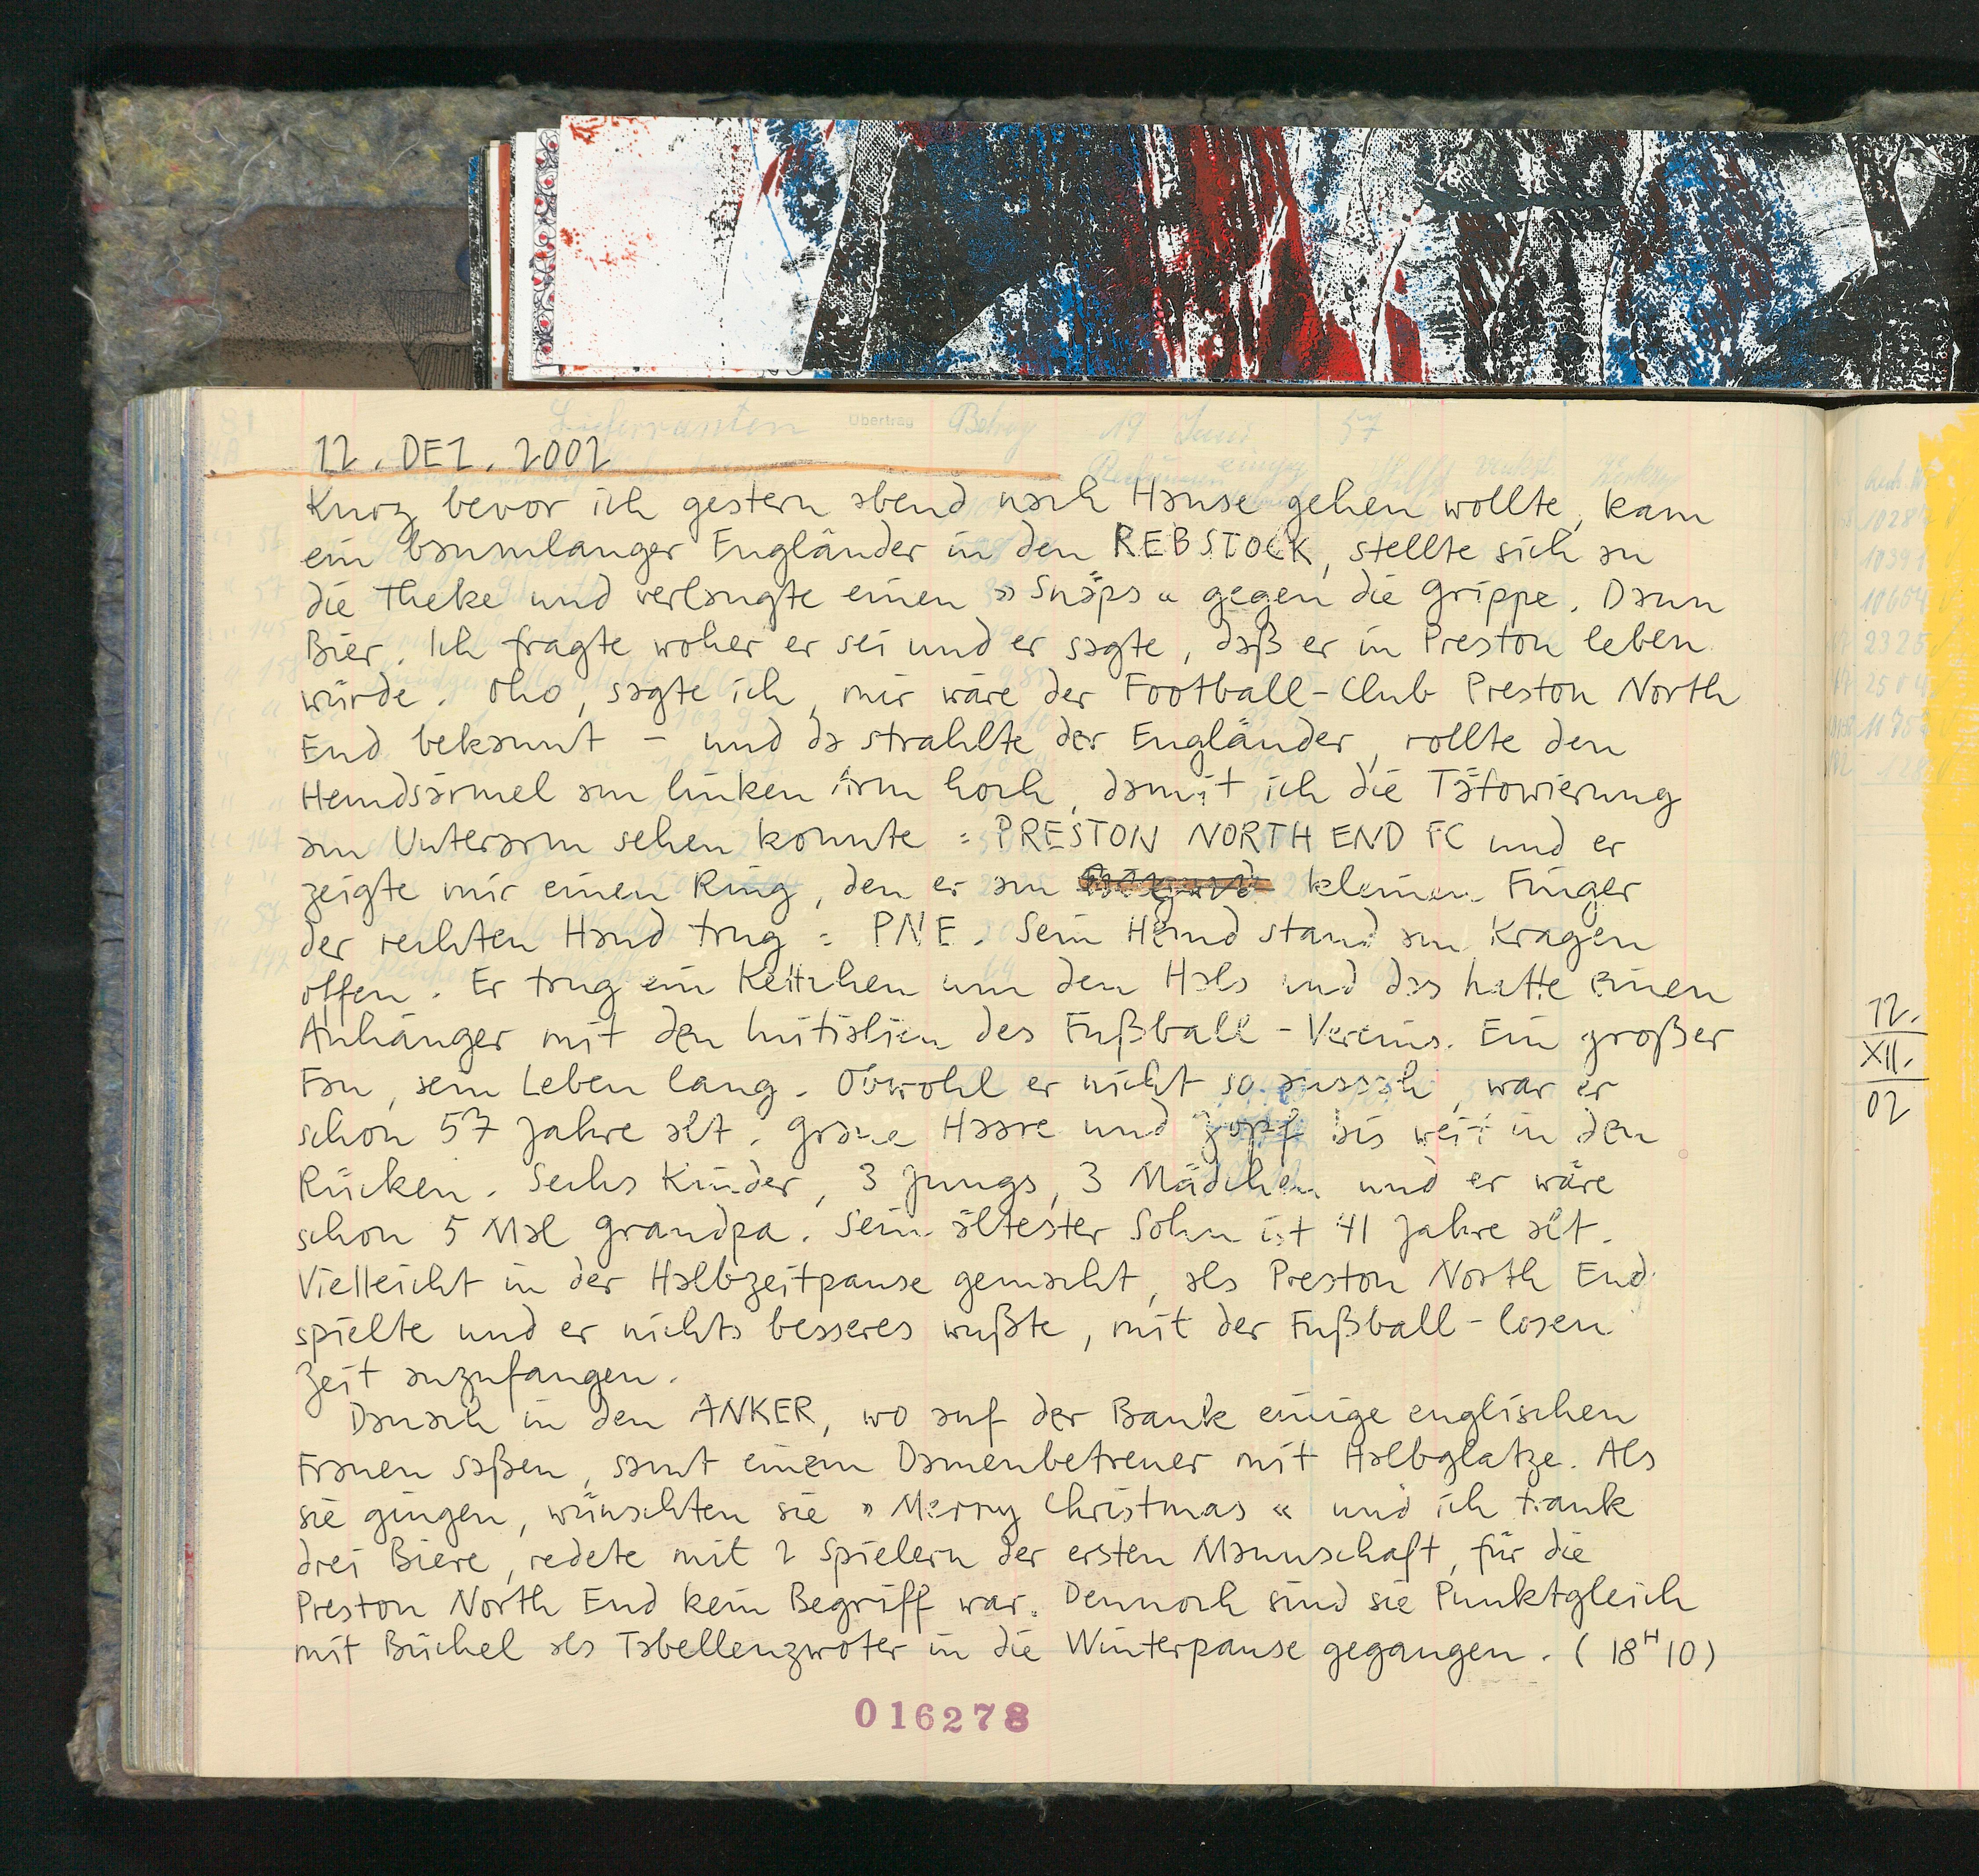 12. DEZ. 2002
Kurz bevor ich gestern abend nach Hause gehen wollte, kam
ein baumlanger Engländer in den REBSTOCK, stellte sich an
die Theke und verlangte einen »Snäps« gegen die Grippe. Dann
Bier. Ich fragte woher er sei und er sagte, daß er in Preston leben
würde. Oho, sagte ich, mir wäre der Football-Club Preston North
End bekannt – und da strahlte der Engländer, rollte den
Hemdsärmel am linken Arm hoch, damit ich die Tätowierung
am Unterarm sehen konnte : PRESTON NORTH END FC und er
zeigte mir einen Ring, den er am kleinen Finger
der rechten Hand trug : PNE. Sein Hemd stand am Kragen
offen. Er trug ein Kettchen um den Hals und das hatte einen
Anhänger mit den Initialien des Fußball-Vereins. Ein großer
Fan, sein Leben lang. Obwohl er nicht so aussah, war er
schon 57 Jahre alt. Graue Haare und Zopf bis weit in den
Rücken. Sechs Kinder, 3 Jungs, 3 Mädchen und er wäre
schon 5 Mal Grandpa. Sein ältester Sohn ist 41 Jahre alt.
Vielleicht in der Halbzeitpause gemacht, als Preston North End
spielte und er nichts besseres wußte, mit der Fußball-losen
Zeit anzufangen.
Danach in den ANKER, wo auf der Bank einige englischen
Frauen saßen, samt einem Damenbetreuer mit Halbglatze. Als
sie gingen, wünschten sie »Merry Christmas« und ich trank
drei Biere, redete mit 2 Spielern der ersten Mannschaft, für die
Preston North End kein Begriff war. Dennoch sind sie Punktgleich
mit Büchel als Tabellenzwoter in die Winterpause gegangen. (18H10)
016278
12.
XII.
02
Lieferranten Übertrag Betrag 19 Juni 57